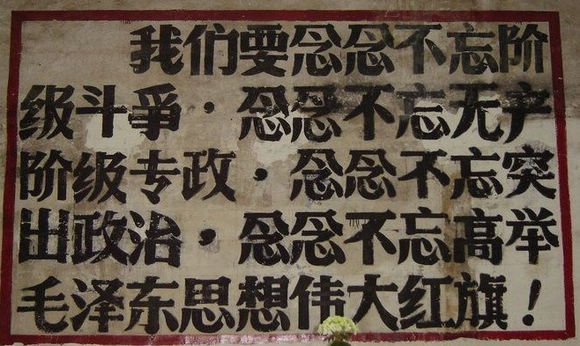 我们要念念不忘阶
级斗争·念念不忘无产
阶级专政·念念不忘突
出政治·念念不忘高举
毛泽东思想伟大红旗！